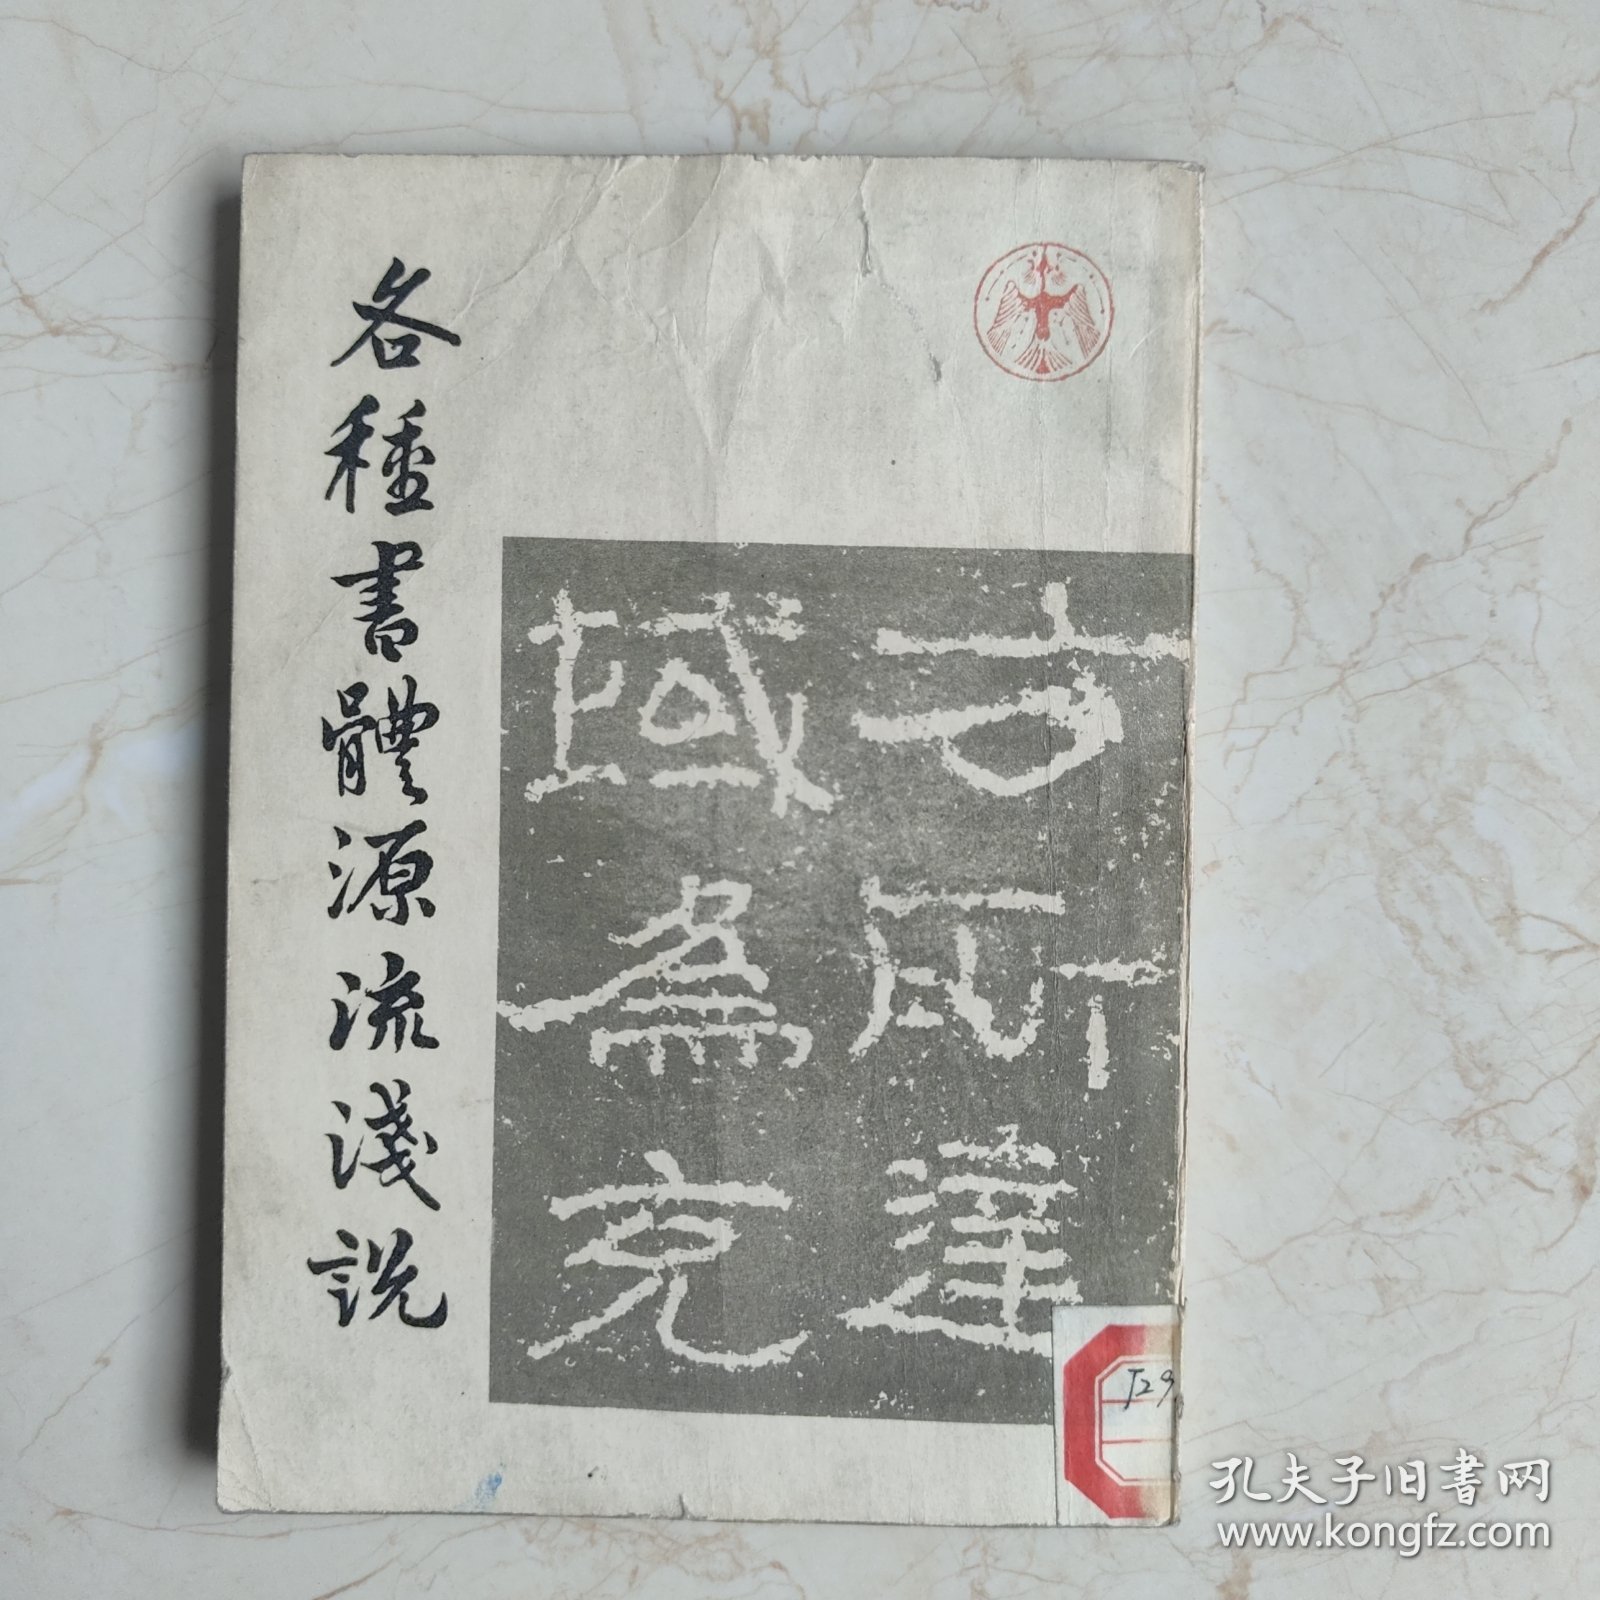 各種書體源流淺説
域為充
達
J29
孔夫子旧书网
www.kongfz.com